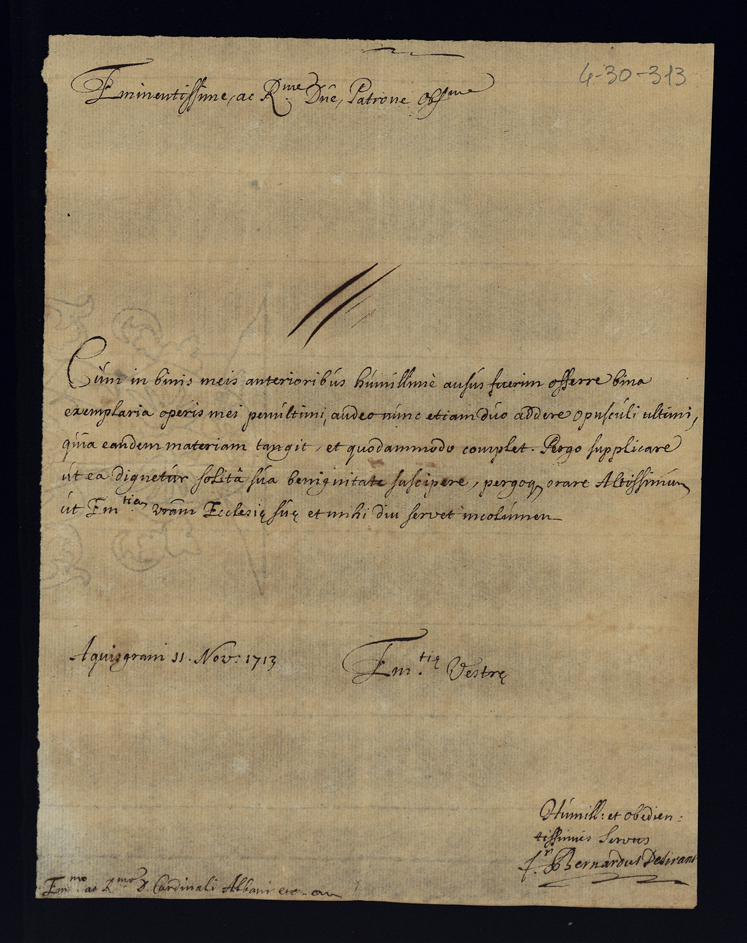 4-30-313
Eminentissime, ac Rme Dne, Patrone Obsme
Cum in binis meis anterioribus humillimè ausus fuerim offerre bina
exemplaria operis mei penultimi, audeo nunc etiam duo addere opusculi ultimi,
quia eandem materiam tangit, et quodammodo complet. Pergo supplicare
ut ea dignetur solitâ suâ benignitate suscipere, pergoq orare Altissimum
ut Emtiam vram Ecclesię suę et mihi diu servet incolumem
Aquisgrani 11. Nov: 1713
Em.tię Vestrę
Humill: et obedien:
tissimus Servus
fr. Bernardus Desirant
Emmo. ac Rmo D. Cardinali Albani etc.